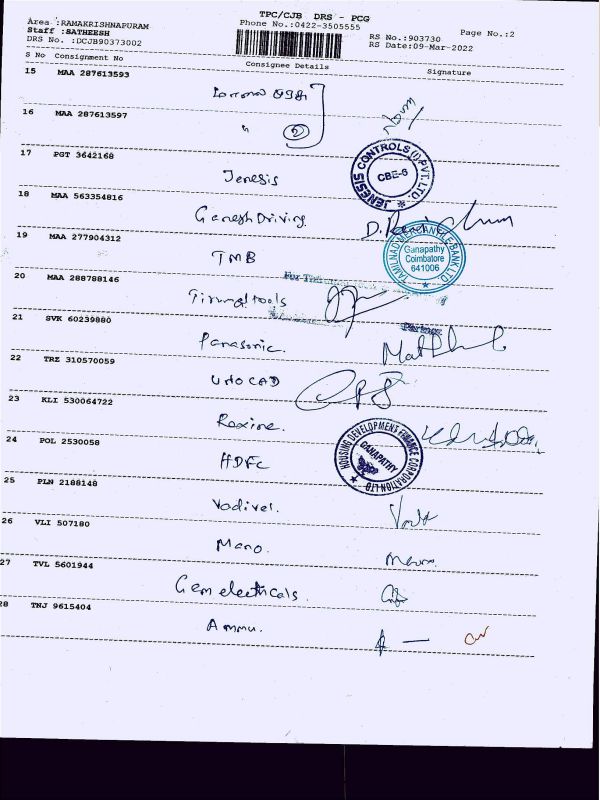 TPC/CJB DRS - PCG
Area :RAMAKRISHNAPURAM
Phone No.:0422-3505555
Page No.:2
Staff :SATHEESH
RS No.:903730
DRS No. :DCJB90373002
RS Date:09-Mar-2022
S No Consignment No
Consignee Details
Signature
15 MAA 287613593
16 MAA 287613597
2
17 PGT 3642168
Jenesis
JENESIS CONTROLS (I) PVT. LTD.
CBE-6
18 MAA 563354816
Ganesh Driving
19 MAA 277904312
TMB
TAMILNAD MERCANTILE BANK LTD
Ganapathy
Coimbatore
641006
20 MAA 288788146
Tirumal tools
For
Partner
21 SVK 60239880
Panasonic.
22 TRZ 310570059
UNOCAD
23 KLI 530064722
Roxine.
24 POL 2530058
HDFC
HOUSING DEVELOPMENT FINANCE CORPORATION LTD
GANAPATHY
25 PLN 2188148
Vadivel.
26 VLI 507180
Mano.
27 TVL 5601944
Gem electricals.
28 TNJ 9615404
Ammu.